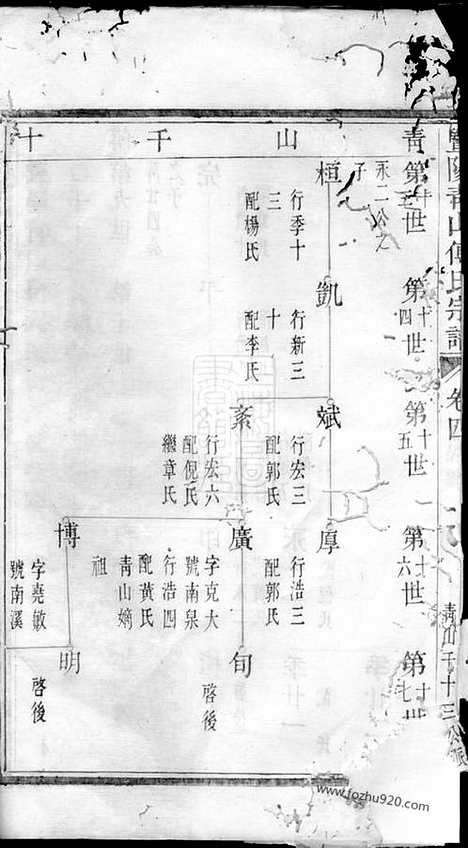 暨陽青山傅氏宗譜
卷四
青山千十三公派
青山千十
第十三世
第十四世
第十五世
第十六世
第十七世
桓
永二公之子
行季十三
配楊氏
凱
行新三十
配李氏
斌
行宏三
配郭氏
紊
行宏六
配倪氏
繼章氏
厚
行浩三
配郭氏
廣
字克大
號南泉
行浩四
配黃氏
青山嫡祖
博
字堯敏
號南溪
旬
啓後
明
啓後
www.fozhu920.com